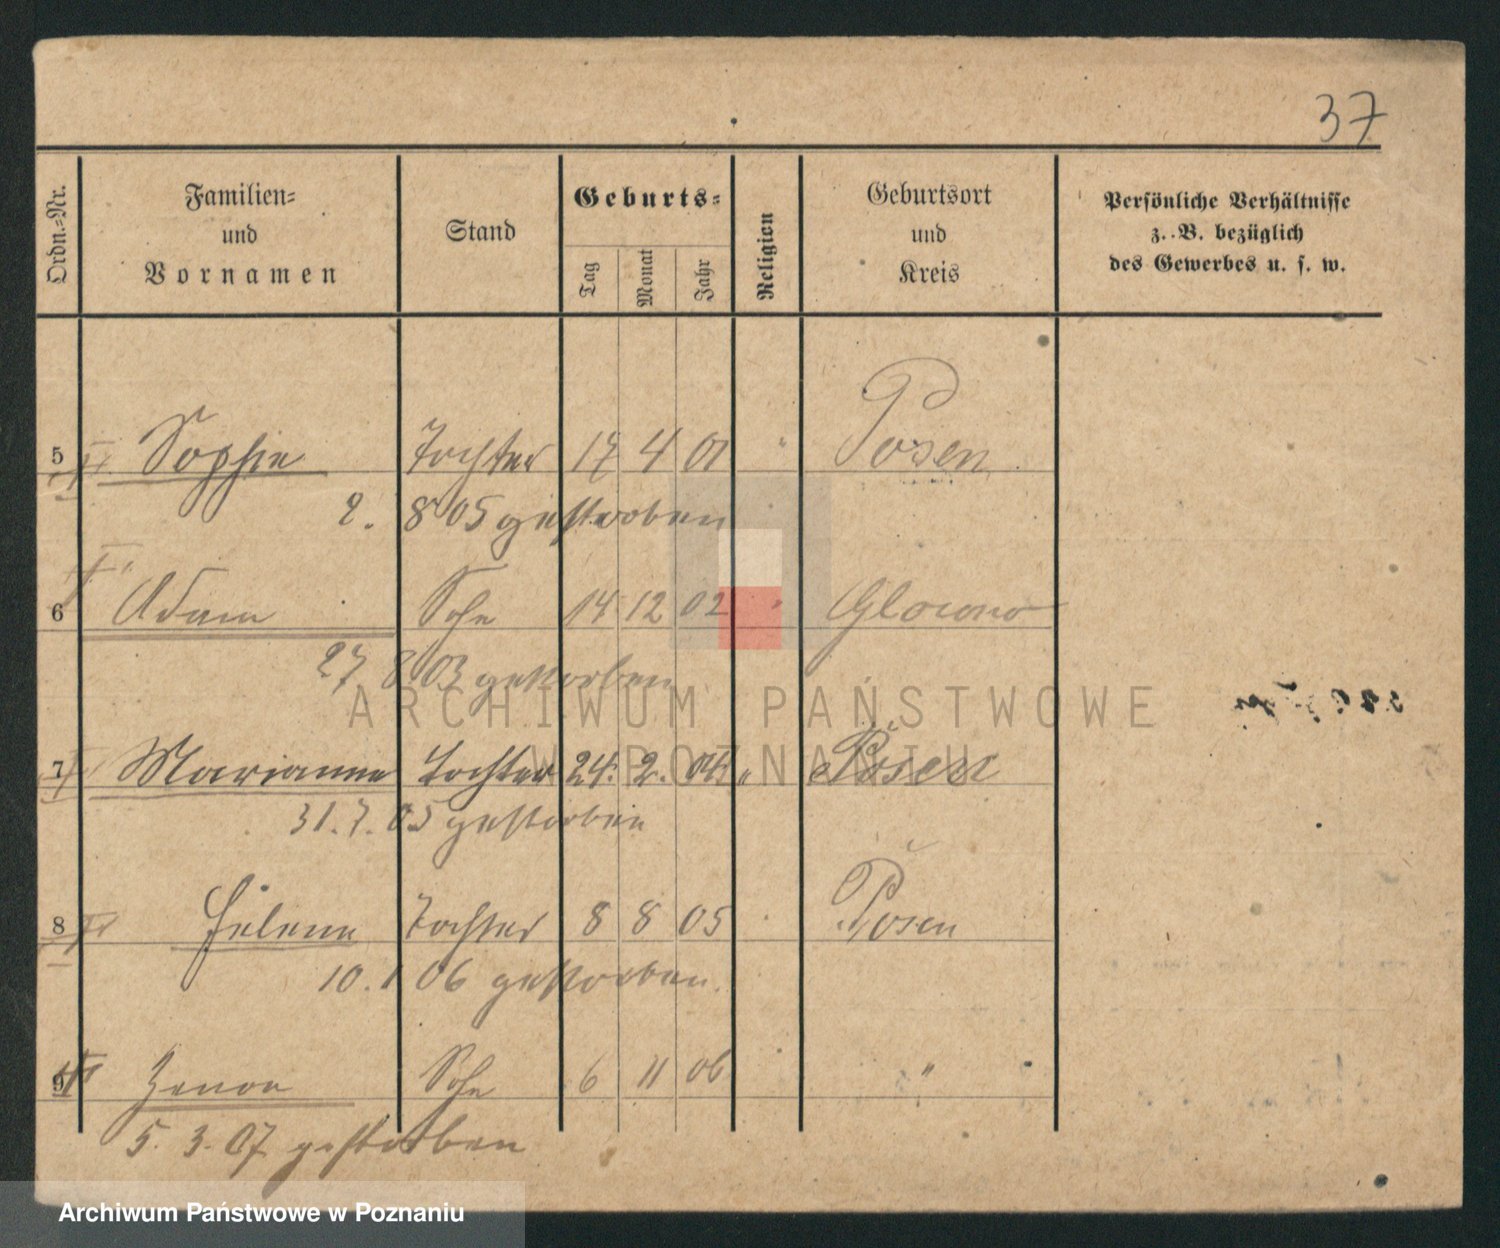 37
Ordn.-Nr.
Familien-
und
Vornamen
Stand
Geburts-
Tag
Monat
Jahr
Religion
Geburtsort
und
Kreis
Persönliche Verhältnisse
z. B. bezüglich
des Gewerbes u. s. w.
5 Sophie Tochter 17 4 01 " Posen
2. 8 05 gestorben
6 Adam Sohn 14 12 02 " Glowno
27 8 03 gestorben
ARCHIWUM PAŃSTWOWE
W POZNANIU
7 Marianna Tochter 24. 2. 04 " Posen
31. 7. 05 gestorben
8 Helene Tochter 8 8 05 Posen
10. 1 06 gestorben.
9 Zenon Sohn 6 11 06 "
5. 3. 07 gestorben
Archiwum Państwowe w Poznaniu